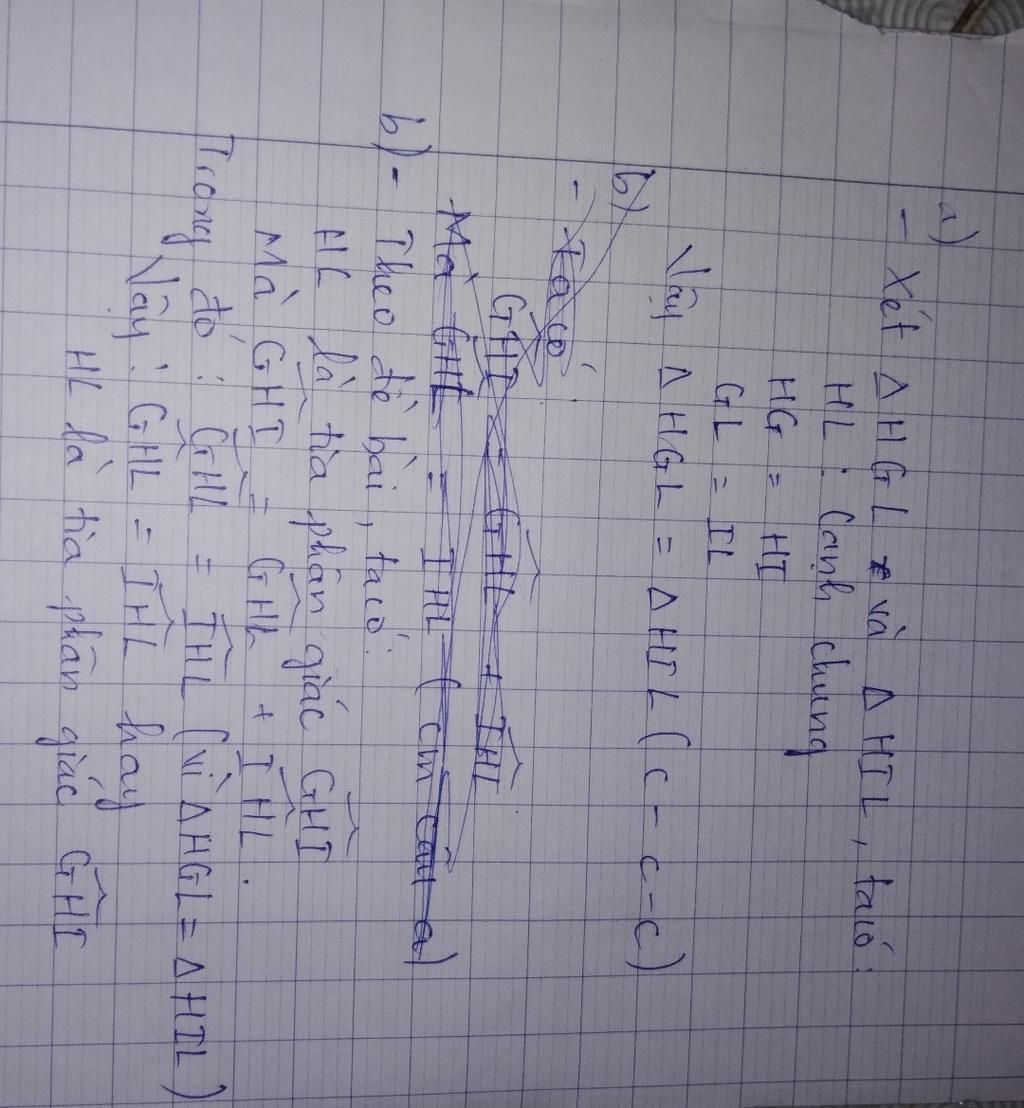 a)
- Xét Δ HGL và Δ HIL, ta có:
HL: Cạnh chung
HG = HI
GL = IL
Vậy Δ HGL = Δ HIL (c-c-c)
b)
- Ta có:
GHI = GHL + IHL
Mà GHL = IHL (cm câu a)
b) - Theo đề bài, ta có:
HL là tia phân giác GHI
Mà GHI = GHL + IHL.
Trong đó: GHL = IHL (vì ΔHGL = ΔHIL)
Vậy: GHL = IHL hay
HL là tia phân giác GHI